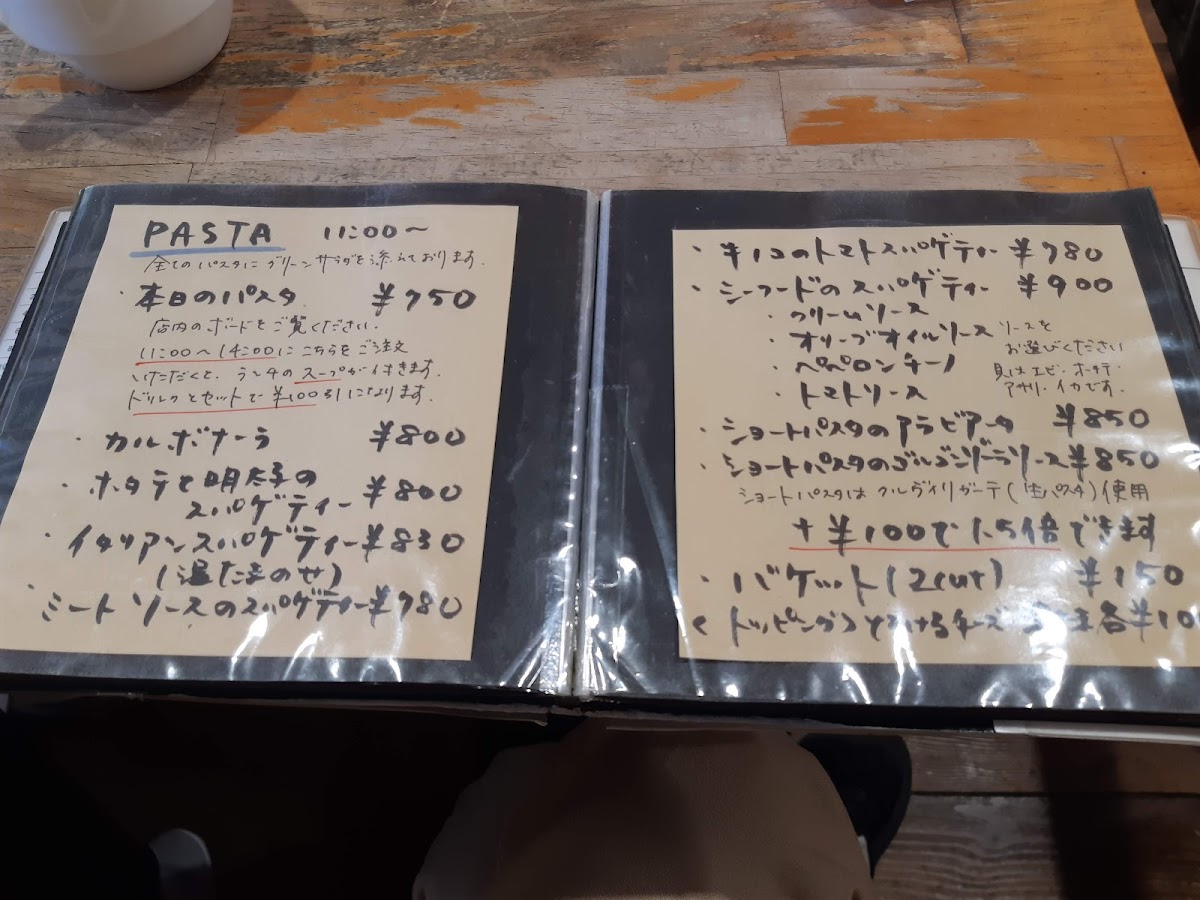 PASTA 11:00〜
全てのパスタにグリーンサラダを添えております.
・本日のパスタ ¥750
店内のボードをご覧ください.
11:00〜14:00にこちらをご注文
いただくと、ランチのスープが付きます.
ドリンクとセットで¥100引になります.
・カルボナーラ ¥800
・ホタテと明太子の
スパゲティー ¥800
・イタリアンスパゲティー ¥830
(温たまのせ)
・ミートソースのスパゲティー ¥780
・キノコのトマトスパゲティー ¥780
・シーフードのスパゲティー ¥900
・クリームソース
・オリーブオイルソース
・ペペロンチーノ
・トマトソース
ソースを
お選びください
具はエビ・ホタテ・
アサリ・イカです.
・ショートパスタのアラビアータ ¥850
・ショートパスタのゴルゴンゾーラソース ¥850
ショートパスタは クルヴィリガーテ(生パスタ)使用
+¥100で1.5倍できます
・バゲット(2cut) ¥150
<トッピング>とろけるチーズ 各¥10